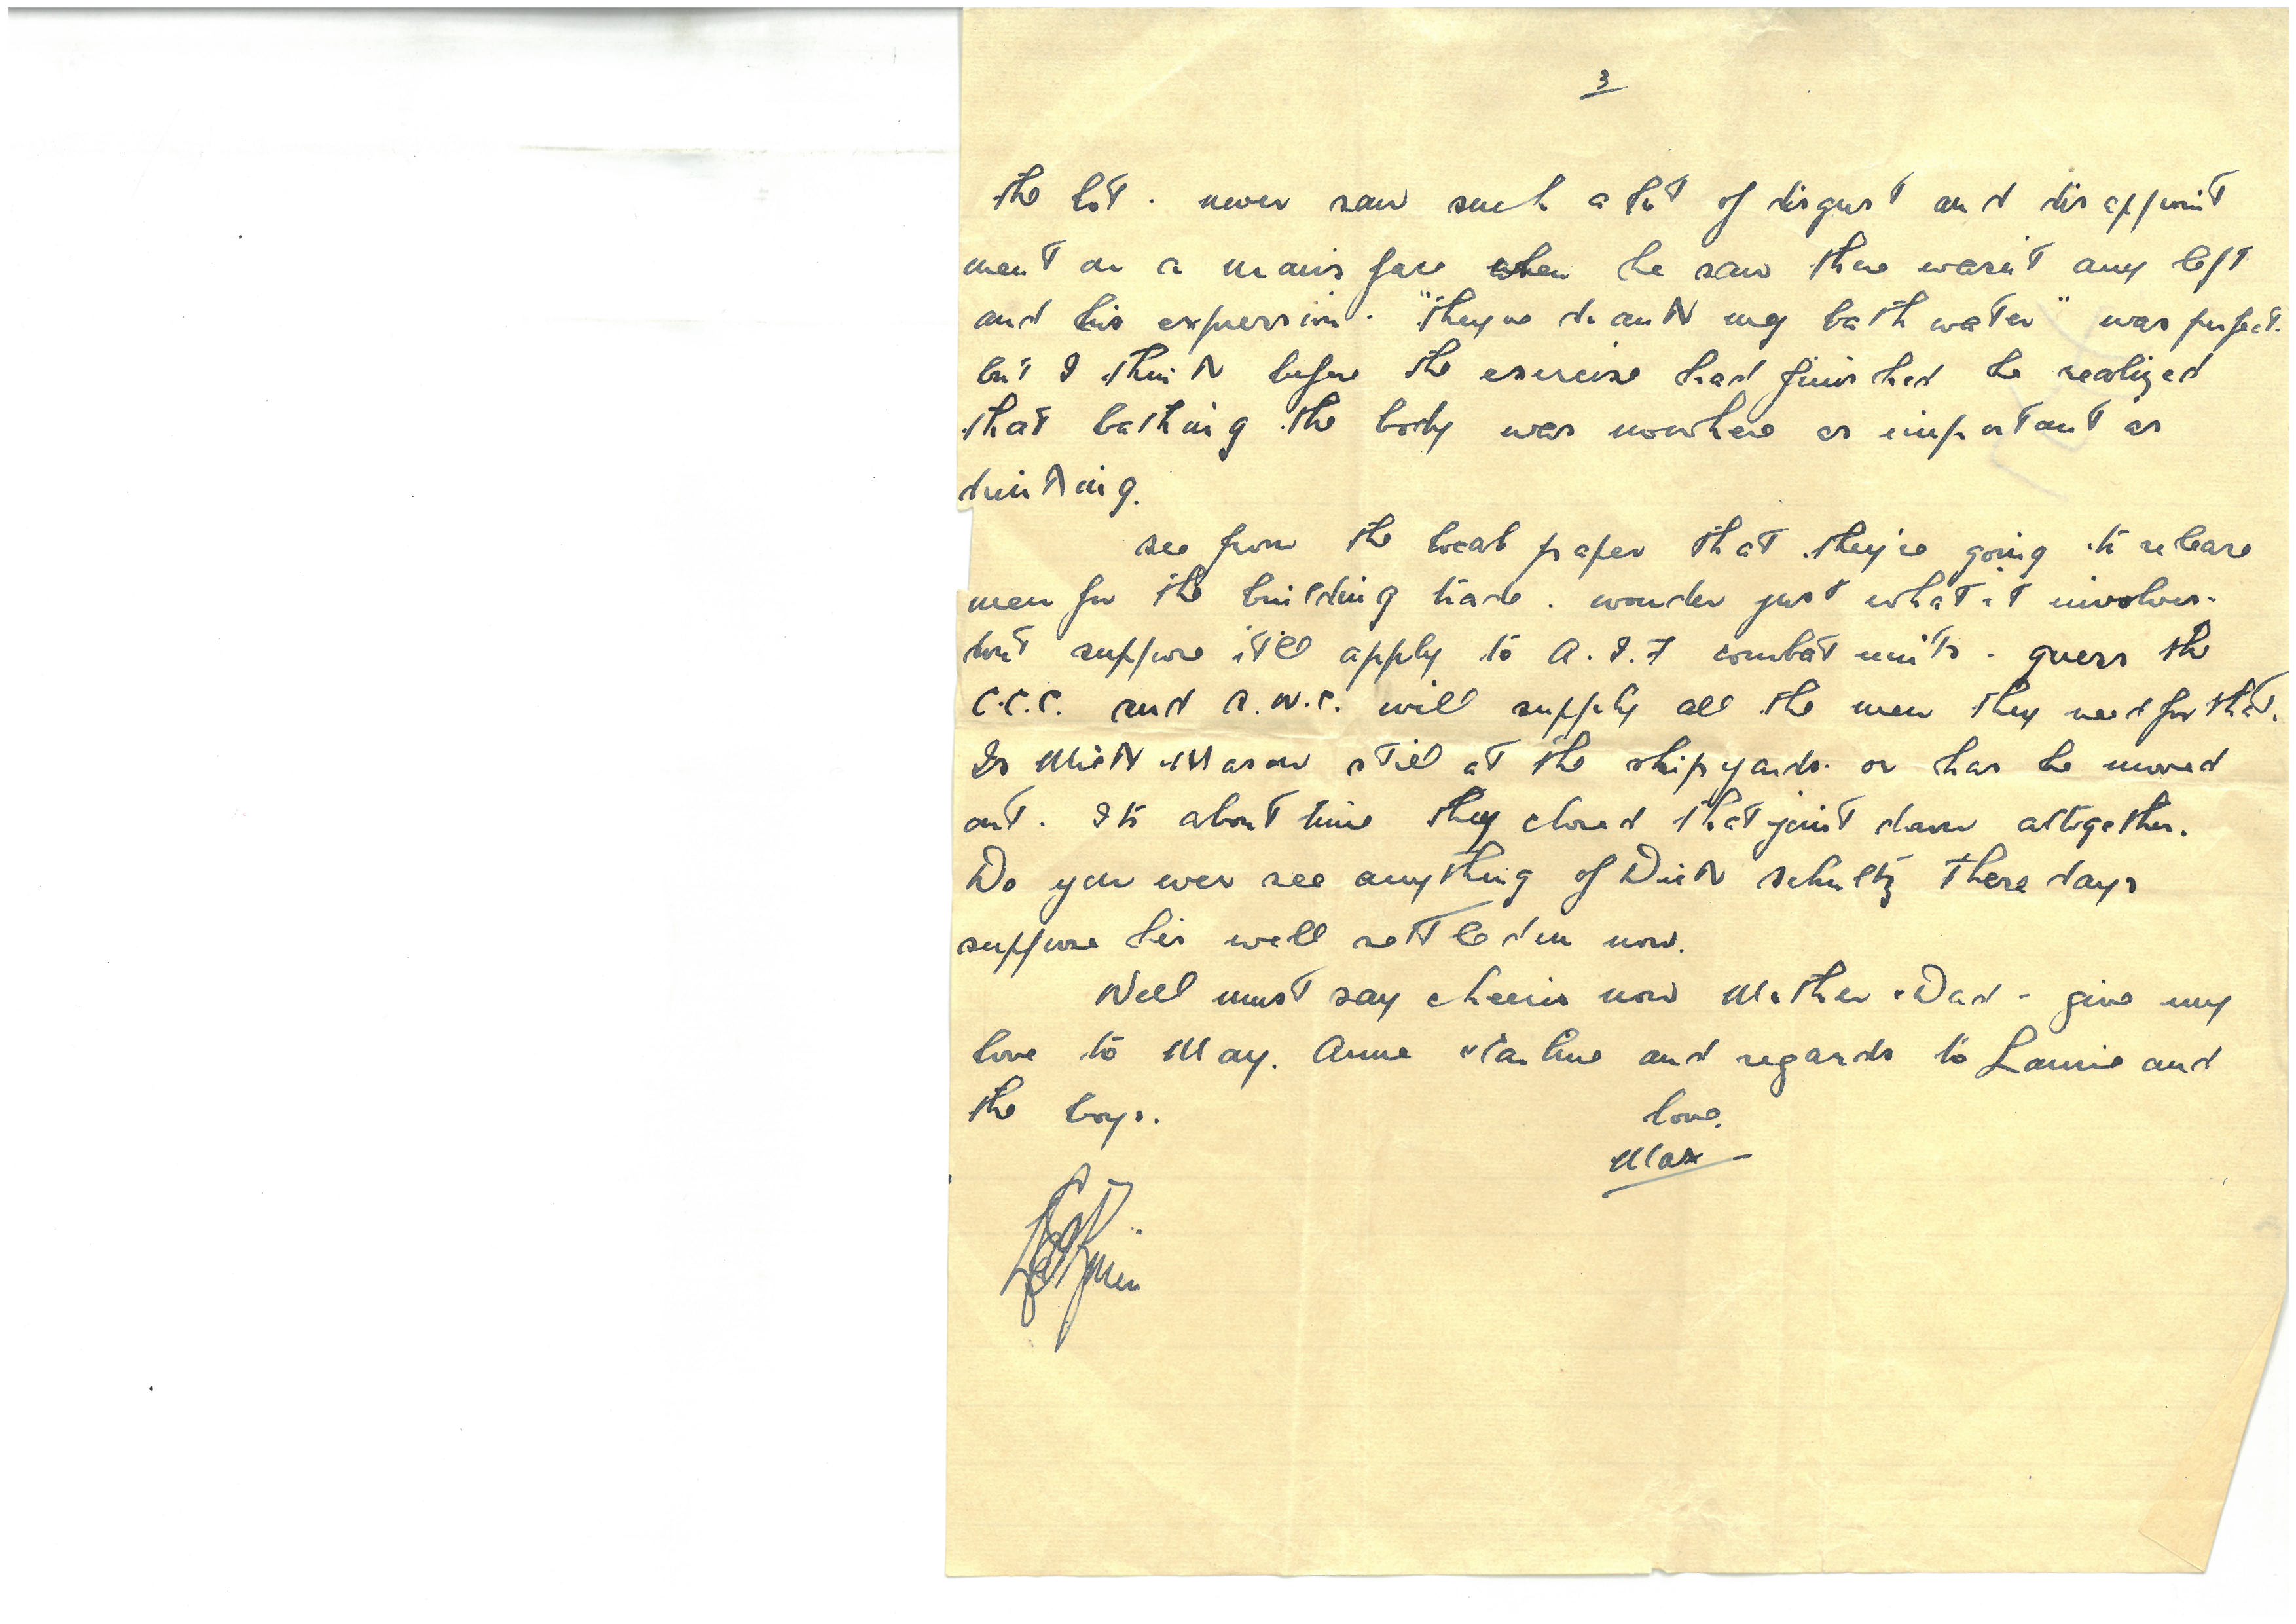 3
the lot. never saw such a lot of disgust and disappoint
ment on a mans face when he saw there wasn't any left
and his expression. "they've drank my bath water" was perfect.
but I think before the exercise had finished he realized
that bathing the body was nowhere as important as
drinking.
see from the local paper that they're going to release
men for the building trade. wonder just what it involves.
dont suppose it'll apply to A.I.F combat units. guess the
C.C.C. and A.W.C. will supply all the men they need for that.
Is Mick Mason still at the shipyards. or has he moved
out. Its about time they closed that joint down altogether.
Do you ever see anything of Dick Schultz these days
suppose hes well settled in now.
Well must say cheerio now Mother & Dad - give my
love to May. Anne and regards to Laurie and
the boys.
love.
Max